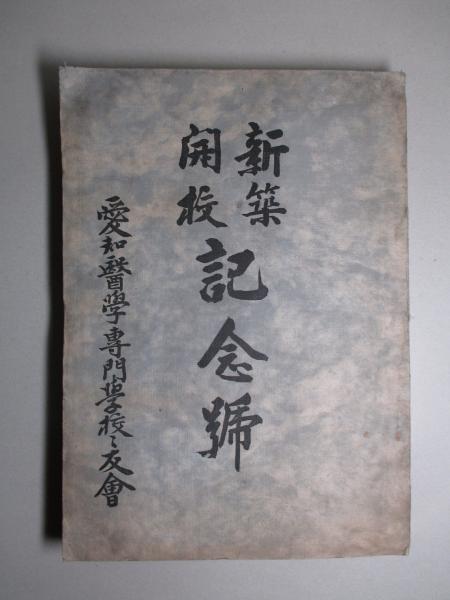 新築
開校
記念號
愛知醫學専門學校〻友會